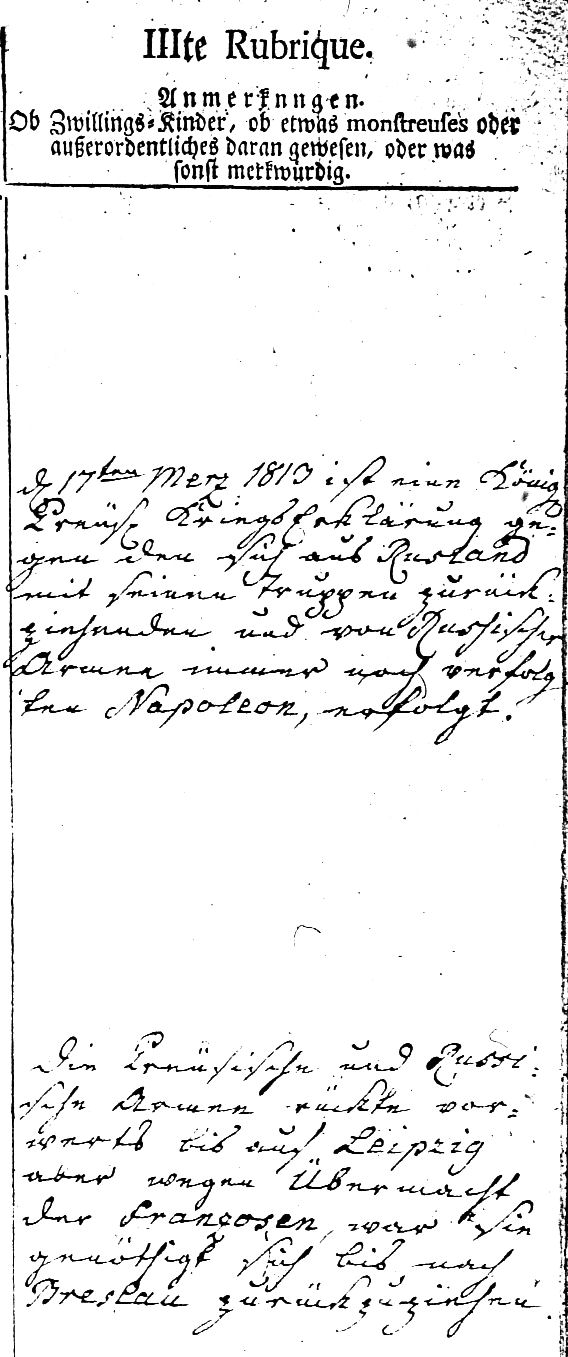 IIIte Rubrique.
Anmerknngen.
Ob Zwillings-Kinder, ob etwas monstreuses oder
außerordentliches daran gewesen, oder was
sonst merkwürdig.
d 17ten Merz 1813 ist eine König
Preüs. Kriegs Erklärung ge-
gen den sich aus Rusland
mit seinen Truppen zurück-
ziehenden und von Russischer
Armee immer noch verfolg
ten Napoleon, erfolgt.
Die Preüsische und Russi-
sche Armee rückte vor-
werts bis auf Leipzig
aber wegen Übermacht
der Françosen, war sie
genöthigt sich bis nach
Breslau zurückzuziehen.